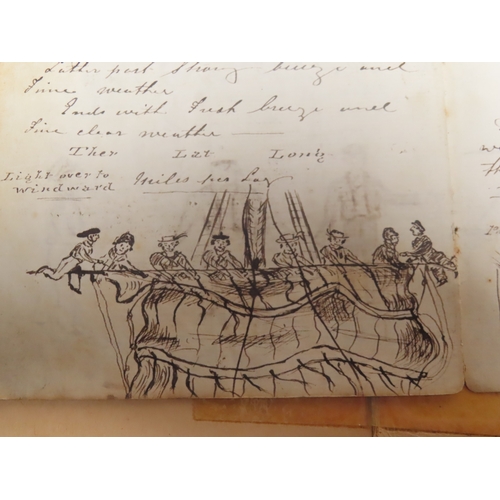 Latter part Strong breeze and
Fine weather
Ends with Fresh breeze and
Fine clear weather —
Ther Lat Long
Light over to
windward
Miles per Log